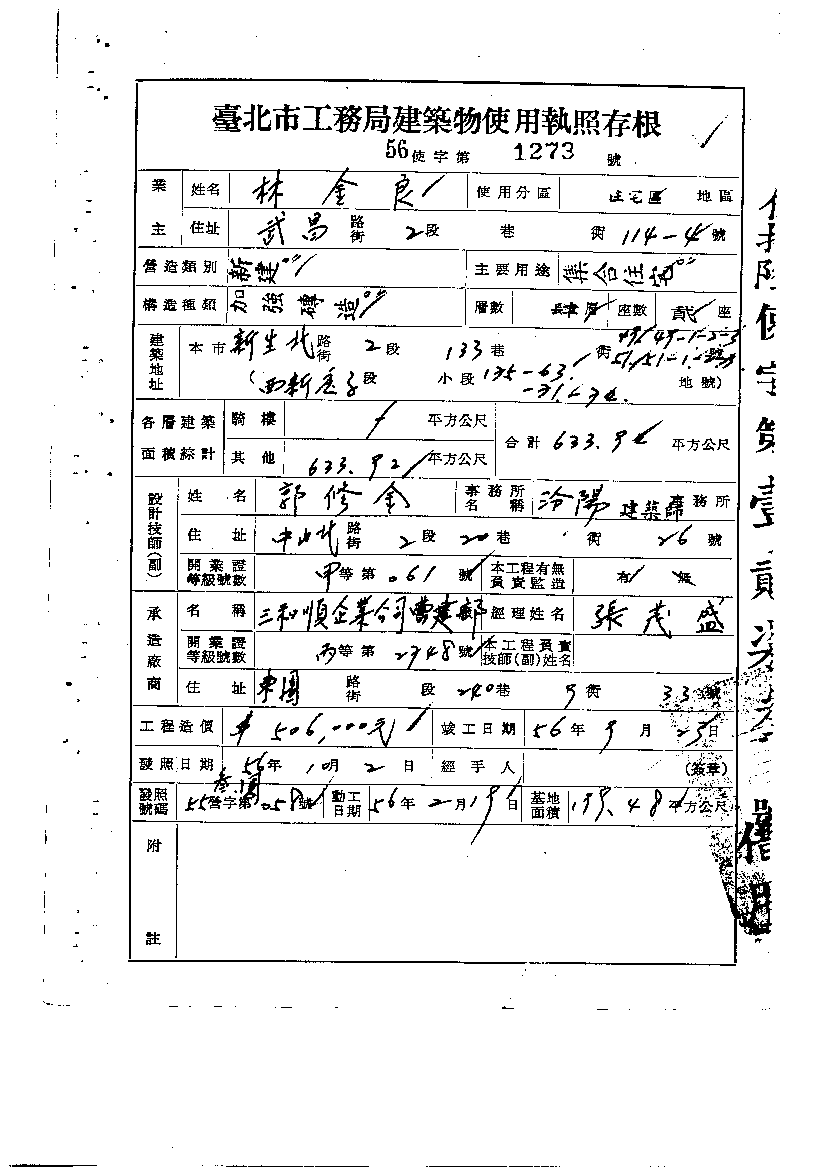 臺北市工務局建築物使用執照存根
56使字第 1273 號
業主 姓名 林金良 使用分區 住宅區 地區
住址 武昌 路街 2段 巷 街 114-4號
營造類別 新建 主要用途 集合住宅
構造種類 加強磚造 層數 層 座數 貳座
建築地址 本市 新生北 路街 2段 133巷 街
(西新庄子段 小段 135-63 地號)
各層建築面積綜計 騎樓 平方公尺 合計 633.92 平方公尺
其他 633.92 平方公尺
設計技師(副) 姓名 郭修金 事務所名稱 汾陽建築師事務所
住址 中山北 路街 2段 20巷 街 26號
開業證等級號數 甲等第061號 本工程有無負責監造 有 無
承造廠商 名稱 三和順企業公司營建部 經理姓名 張茂盛
開業證等級號數 丙等第2748號 本工程負責技師(副)姓名
住址 東園 路街 段 240巷 9街 33號
工程造價 506,000元 竣工日期 56年9月23日
發照日期 56年10月2日 經手人 (簽章)
發照號碼 55營字第058號 動工日期 56年2月19日 基地面積 199.48平方公尺
附註